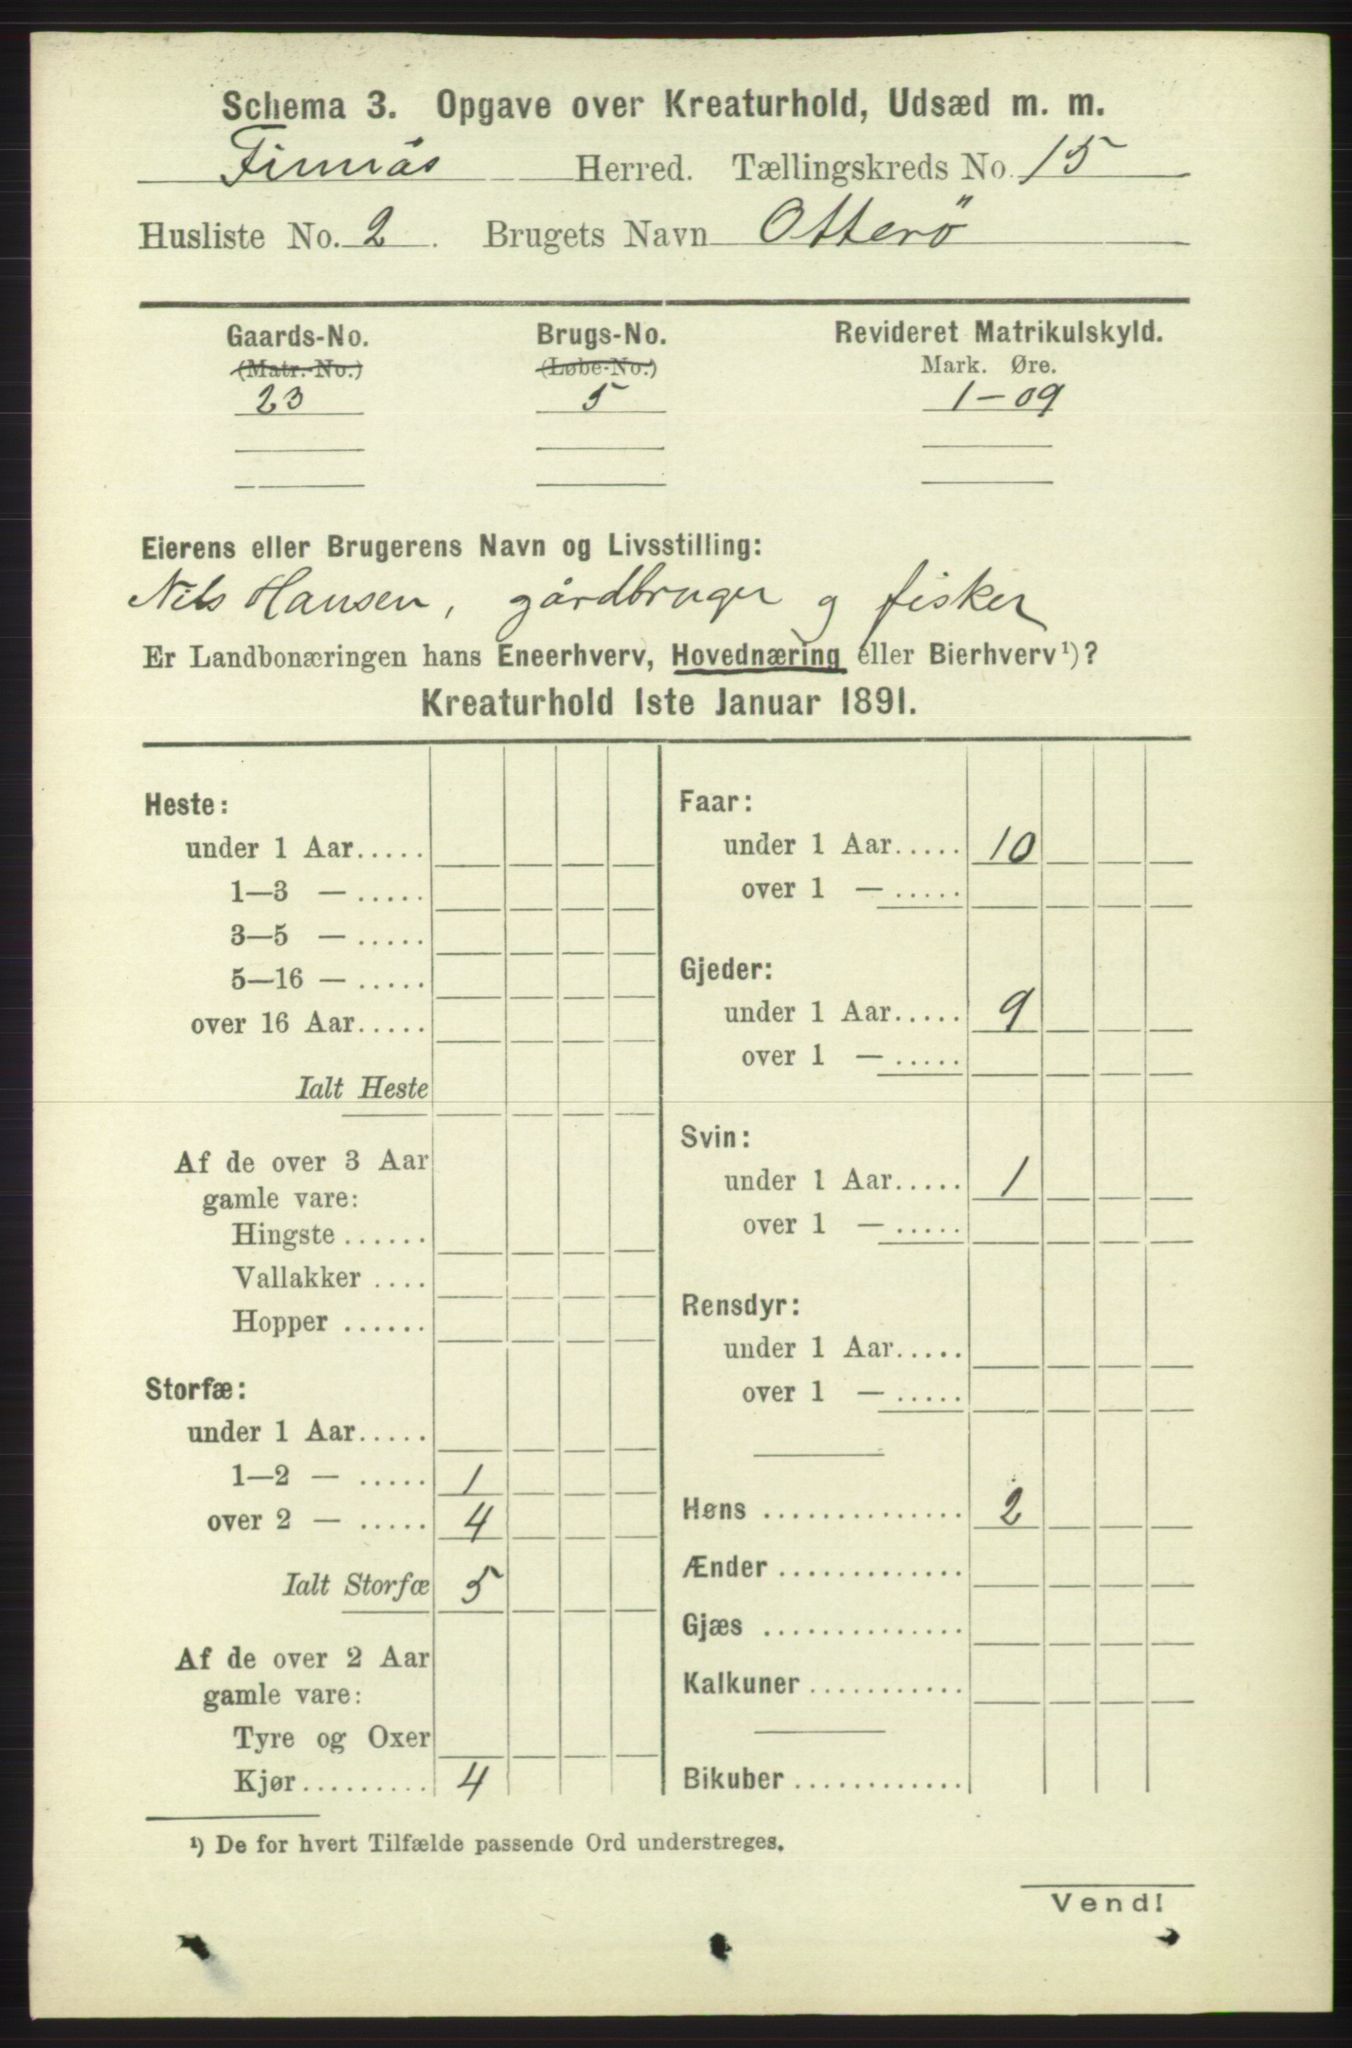 Schema 3. Opgave over Kreaturhold, Udsæd m. m.
Finnås Herred. Tællingskreds No. 15
Husliste No. 2. Brugets Navn Otterö
Gaards-No. Brugs-No. Revideret Matrikulskyld.
(Matr.-No.) (Løbe-No.) Mark. Øre.
23 5 1-09
Eierens eller Brugerens Navn og Livsstilling:
Nils Hansen, gårdbruger og fisker
Er Landbonæringen hans Eneerhverv, Hovednæring eller Bierhverv¹)?
Kreaturhold 1ste Januar 1891.
Heste:
under 1 Aar.....
1—3 — .....
3—5 — .....
5—16 — .....
over 16 Aar.....
Ialt Heste
Af de over 3 Aar
gamle vare:
Hingste ......
Vallakker ....
Hopper ......
Storfæ:
under 1 Aar.....
1—2 — ..... 1
over 2 — ..... 4
Ialt Storfæ 5
Af de over 2 Aar
gamle vare:
Tyre og Oxer
Kjør......... 4
Faar:
under 1 Aar..... 10
over 1 — .....
Gjeder:
under 1 Aar..... 9
over 1 — .....
Svin:
under 1 Aar..... 1
over 1 — .....
Rensdyr:
under 1 Aar.....
over 1 — .....
Høns .............. 2
Ænder .............
Gjæs ..............
Kalkuner ...........
Bikuber ............
¹) De for hvert Tilfælde passende Ord understreges.
Vend!